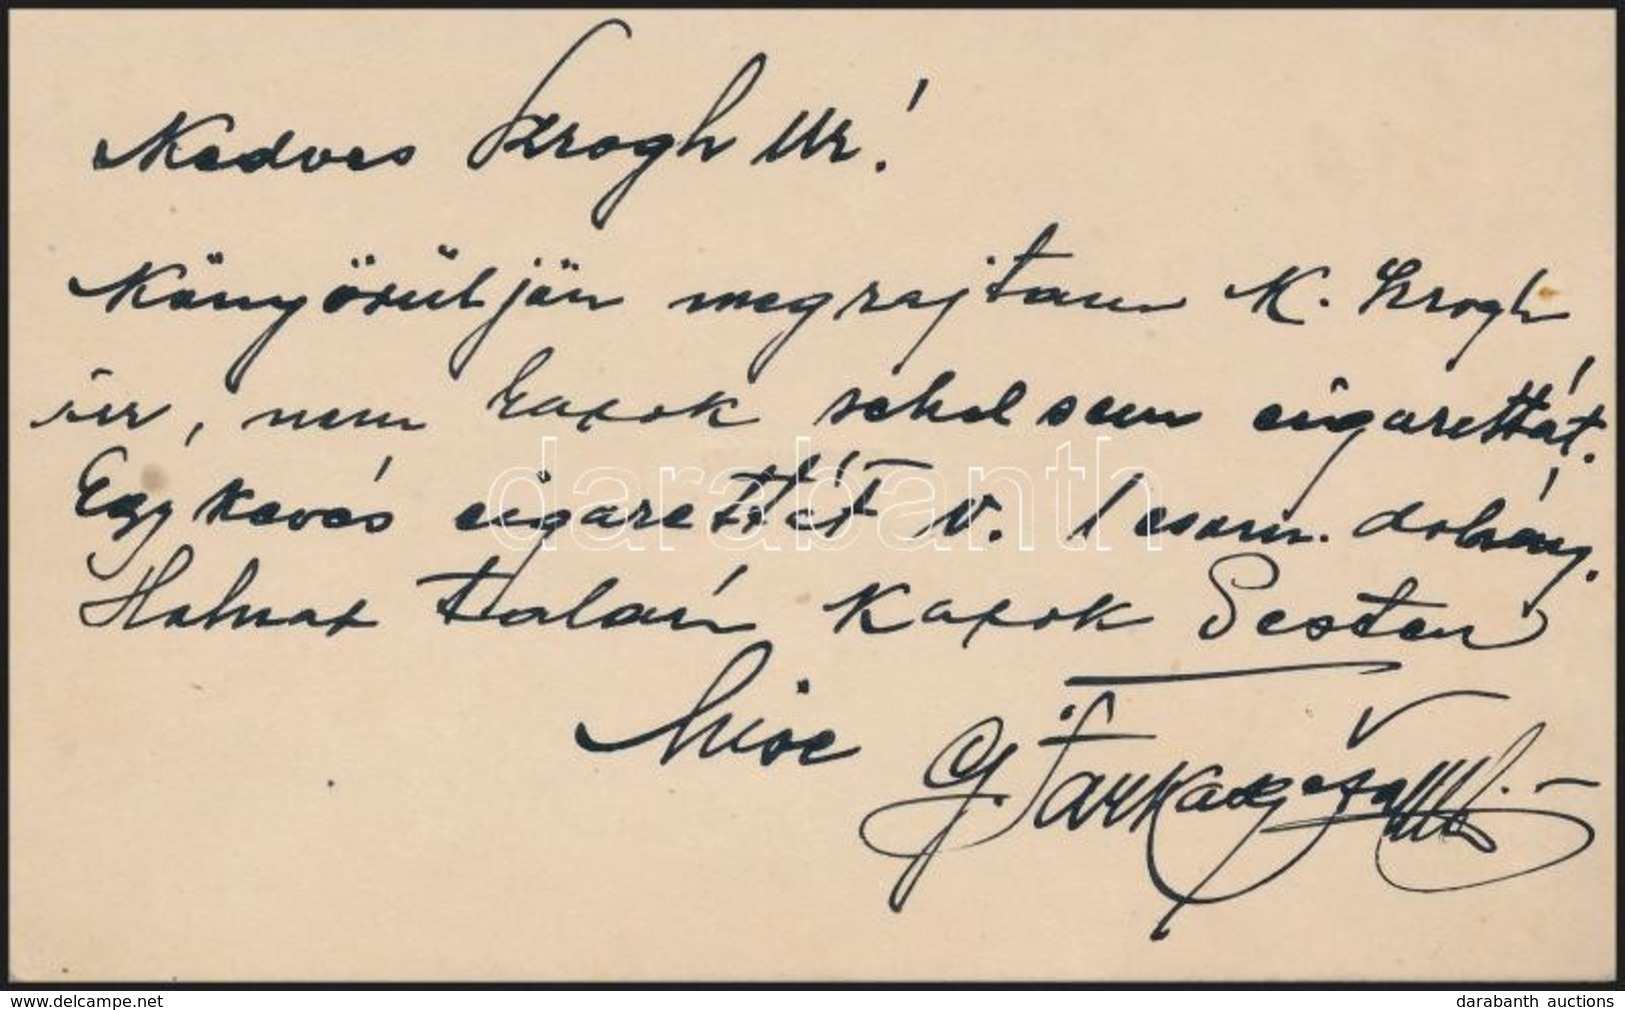 Kedves Krogh Ur!
Könyörüljön megrajtam K. Krogh
úr, nem kapok sehol sem cigarettát.
Egy kevés cigarettát v. 1 csom. dohány.
Holnap talán kapok Pesten
G. Farkas
darabanth
www.delcampe.net
darabanth auctions